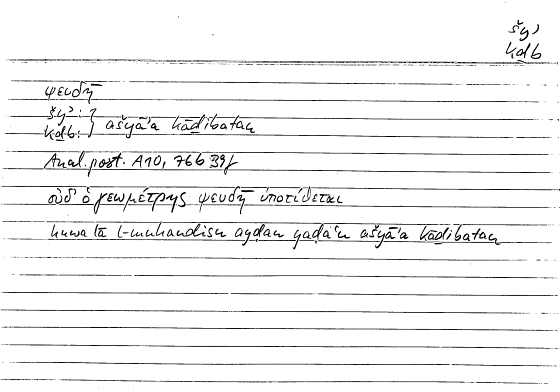 šyʾ
kḏb
ψευδῆ
šyʾ:
kḏb: } ašyāʾa kāḏibatan
Anal. post. A10, 76b39f
οὐδ' ὁ γεωμέτρης ψευδῆ ὑποτίθεται
lā l-muhandisu ayḍan yaḍaʿu ašyāʾa kāḏibatan